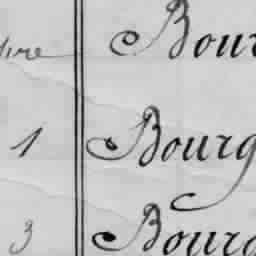 Bour
1 Bourg
3 Bourg